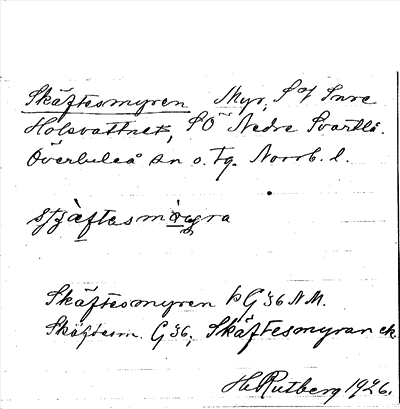 Skäftesmyren Myr, S of Inre
Holsvattnet, SO Nedre Svartlå.
Överluleå sn o. tg. Norrb. l.
Skäftesmyren på G 36 N M.
Skäftesm. G 36, Skäftesmyran ek.
H. Rutberg 1926.